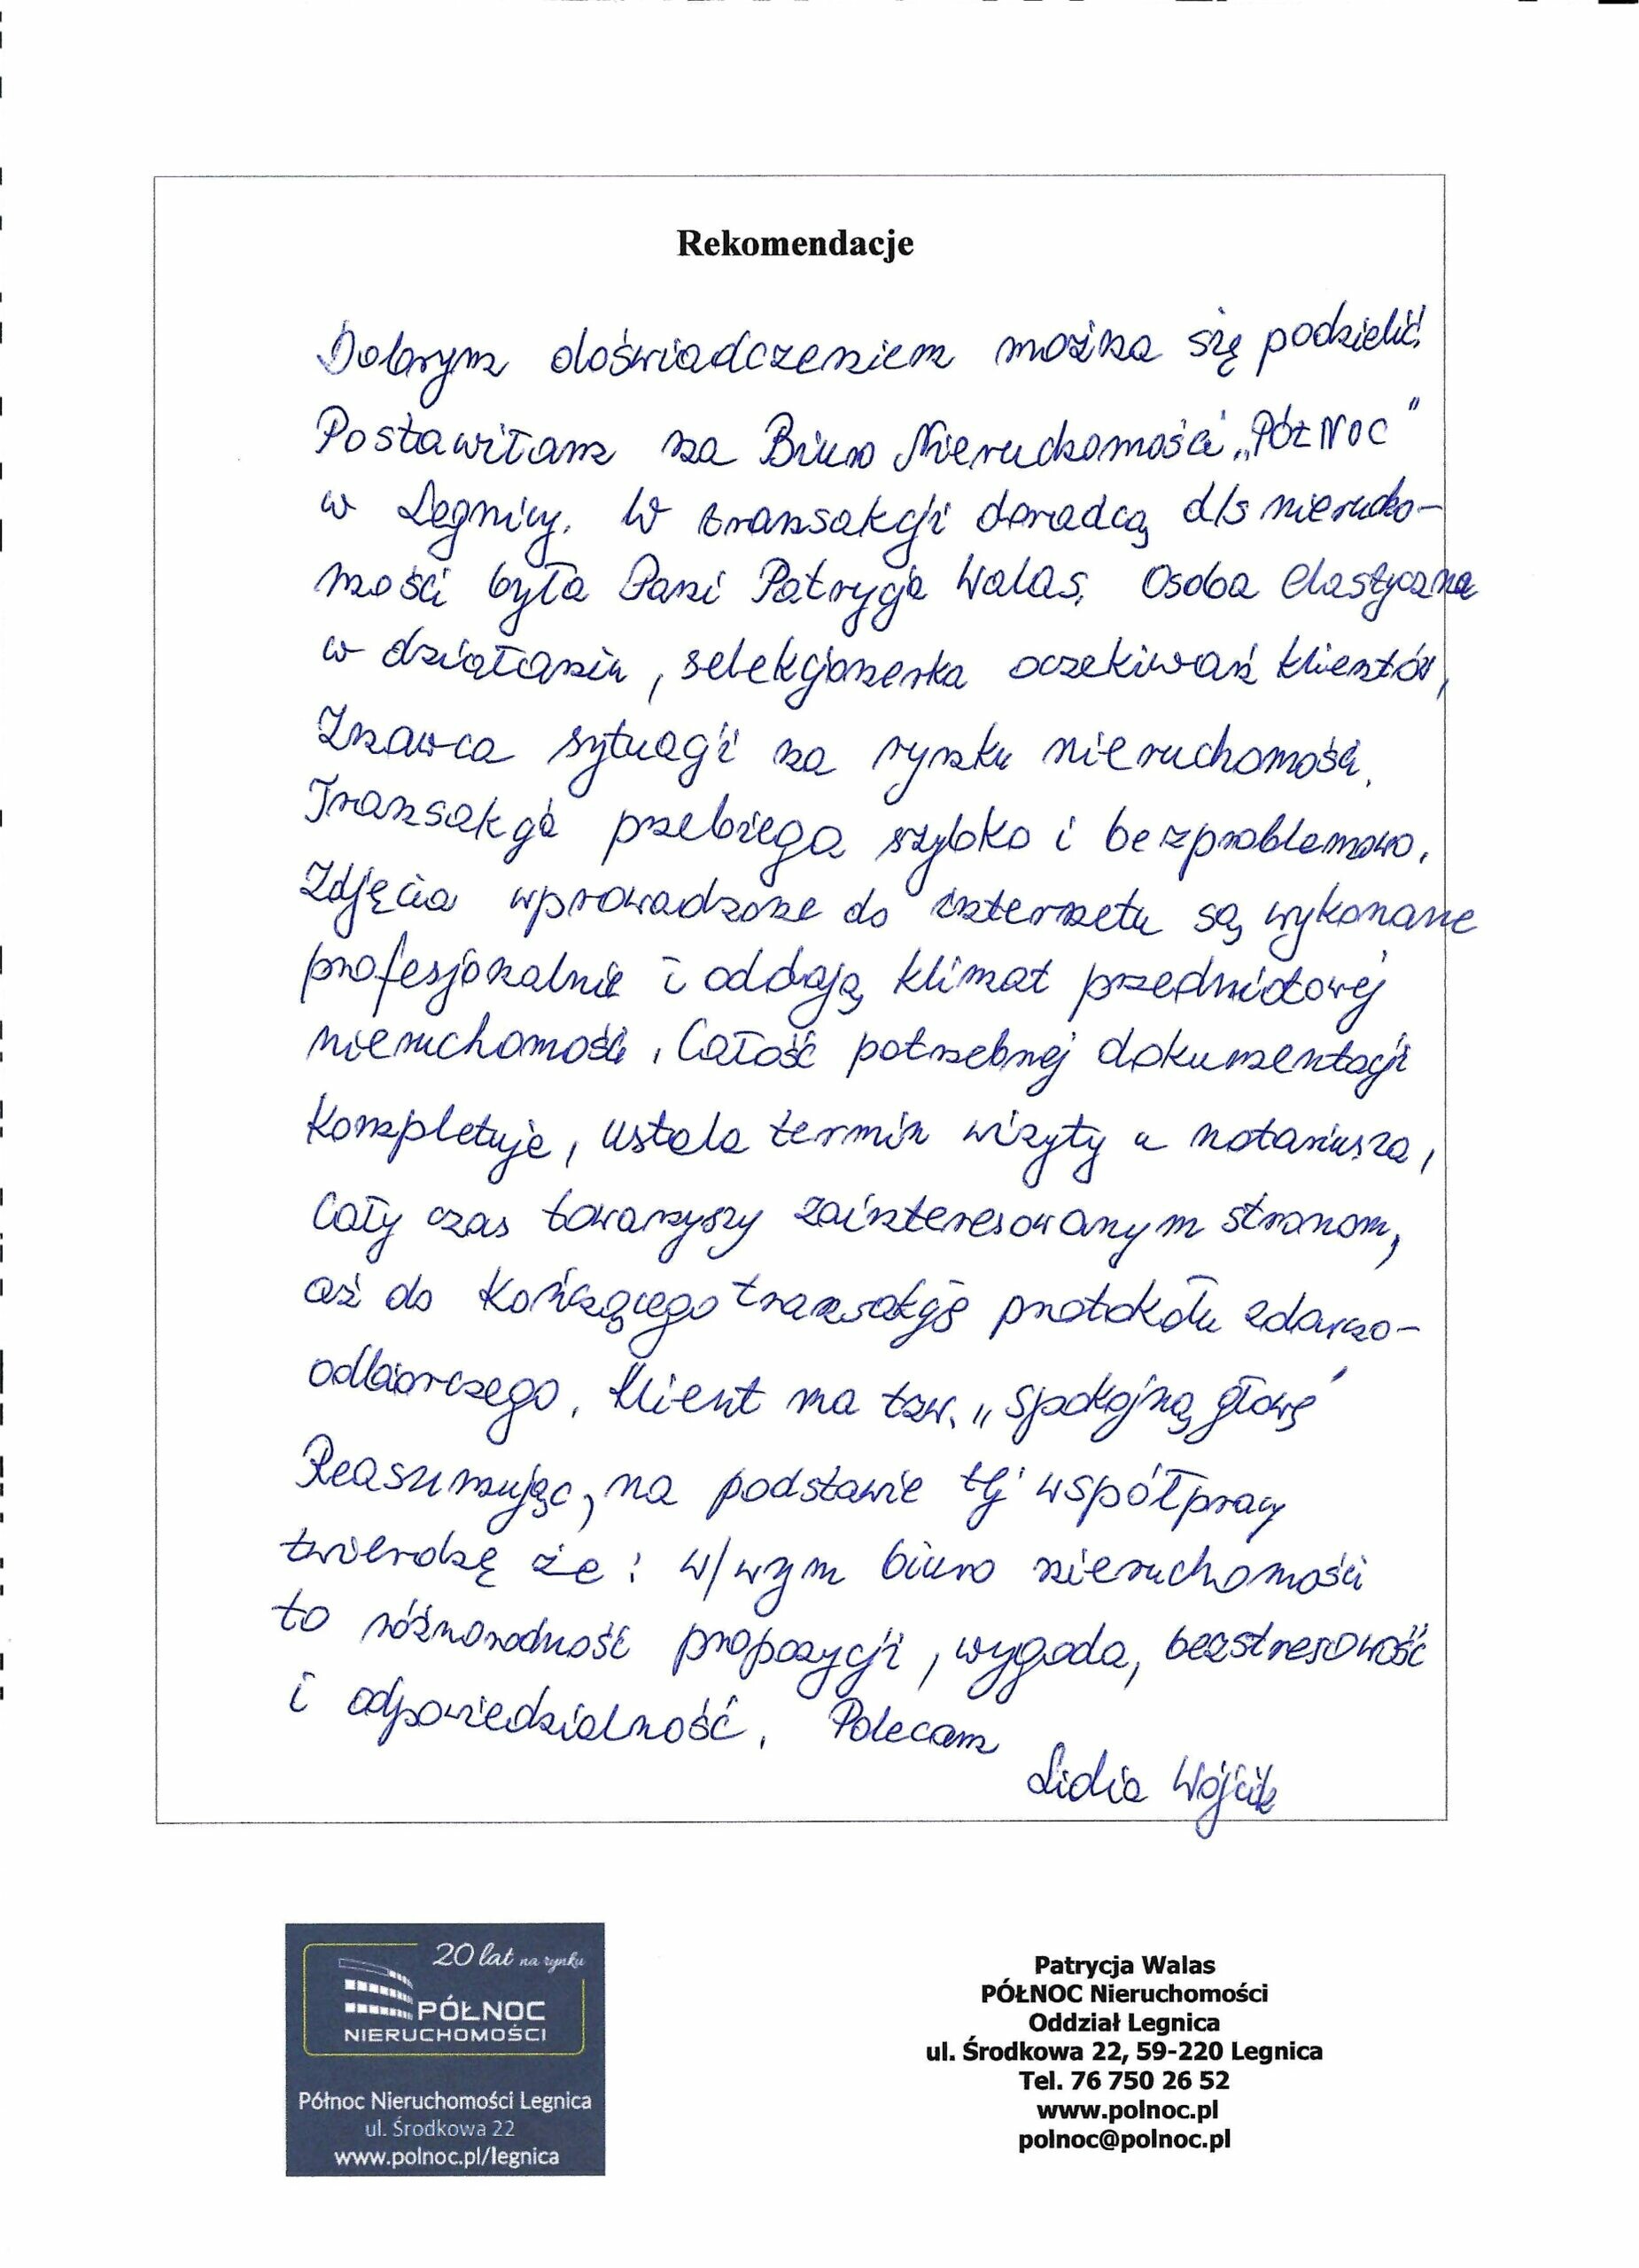 Rekomendacje
Dobrym doświadczeniem można się podzielić.
Postawiłam na Biuro Nieruchomości „PÓŁNOC"
w Legnicy. W transakcji doradcą d/s nierucho-
mości była Pani Patrycja Walas. Osoba elastyczna
w działaniu, selekcjonerka oczekiwań klientów,
Znawca sytuacji na rynku nieruchomości.
Transakcja przebiega szybko i bezproblemowo.
Zdjęcia wprowadzone do internetu są wykonane
profesjonalnie i oddają klimat przedmiotowej
nieruchomości. Całość potrzebnej dokumentacji
kompletuje, ustala termin wizyty u notariusza,
Cały czas towarzyszy zainteresowanym stronom,
aż do kończącego transakcję protokołu zdawczo-
odbiorczego. Klient ma tzw. „spokojną głowę"
Reasumując, na podstawie tej współpracy
twierdzę że: w/wym biuro nieruchomości
to różnorodność propozycji, wygoda, bezstresowość
i odpowiedzialność. Polecam
Lidia Wójcik
20 lat na rynku
PÓŁNOC
NIERUCHOMOŚCI
Północ Nieruchomości Legnica
ul. Środkowa 22
www.polnoc.pl/legnica
Patrycja Walas
PÓŁNOC Nieruchomości
Oddział Legnica
ul. Środkowa 22, 59-220 Legnica
Tel. 76 750 26 52
www.polnoc.pl
polnoc@polnoc.pl